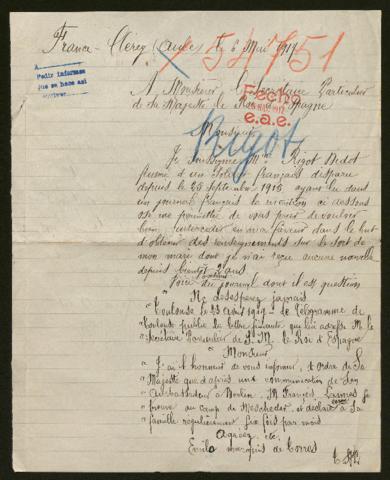 France - Clérey (Aube) le 6 Mai 1917
154751
A
Pedir informase
que se hace asi
A Monsieur le Secrétaire Particulier
de Sa Majesté le Roi d'Espagne
Fecho
e.a.e.
Monsieur
Rigot
Je soussignée Mme Rigot Didot
femme d'un soldat français disparu
depuis le 26 Septembre 1915 ayant lu dans
un journal français la mention ci dessous
ose me permettre de vous prier de vouloir
bien intercéder en ma faveur dans le but
d'obtenir des renseignements sur le sort de
mon mari dont je n'ai reçu aucune nouvelle
depuis bientôt 2 ans
Voici du journal dont il est question
Ne désespérez jamais
Toulouse le 23 Avril 1917 - Le Télégramme de
Toulouse publie la lettre suivante que lui adresse M. le
Secrétaire Particulier de S. M. le Roi d'Espagne
Monsieur
" J'ai l'honneur de vous informer, d'ordre de Sa
" Majesté que d'après une communication de Son
" Ambassadeur à Berlin, M. François se
" trouve au camp de Mescheder, et déclare à Sa
" famille régulièrement six fois par mois
Agréez, etc.
Emilo marquis de Torres